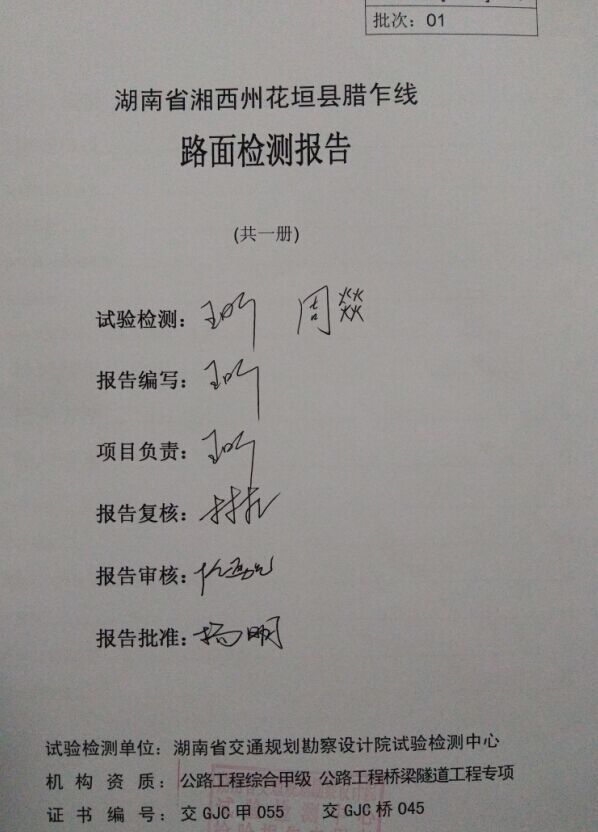 批次：01
湖南省湘西州花垣县腊乍线
路面检测报告
(共一册)
试验检测： 周燚
报告编写：
项目负责：
报告复核：
报告审核：
报告批准：杨明
试验检测单位：湖南省交通规划勘察设计院试验检测中心
机构资质：公路工程综合甲级 公路工程桥梁隧道工程专项
证书编号：交 GJC 甲 055 交 GJC 桥 045